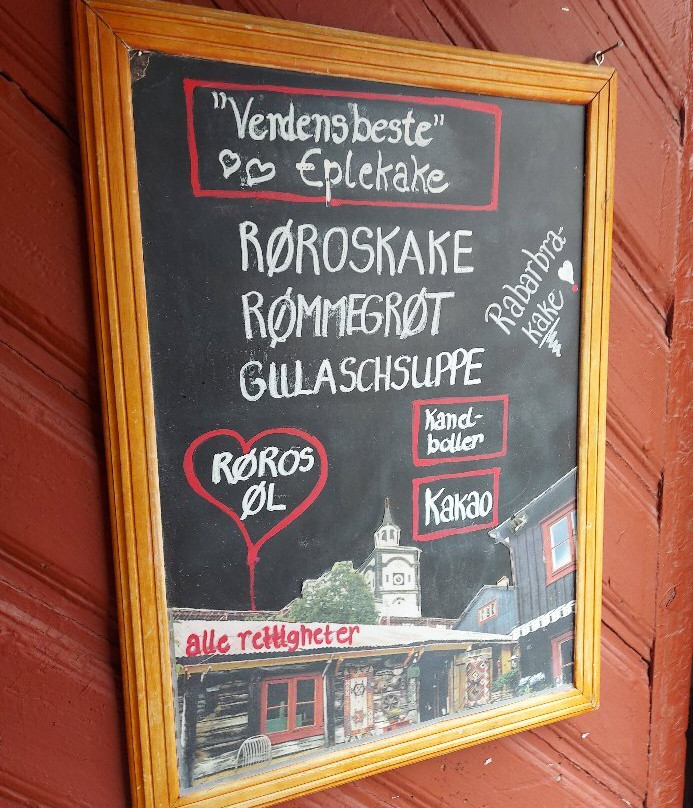 "Verdensbeste"
Eplekake
RØROSKAKE
RØMMEGRØT
GULASCHSUPPE
Rabarbra-
kake
Kanel-
boller
RØROS
ØL
Kakao
alle rettigheter